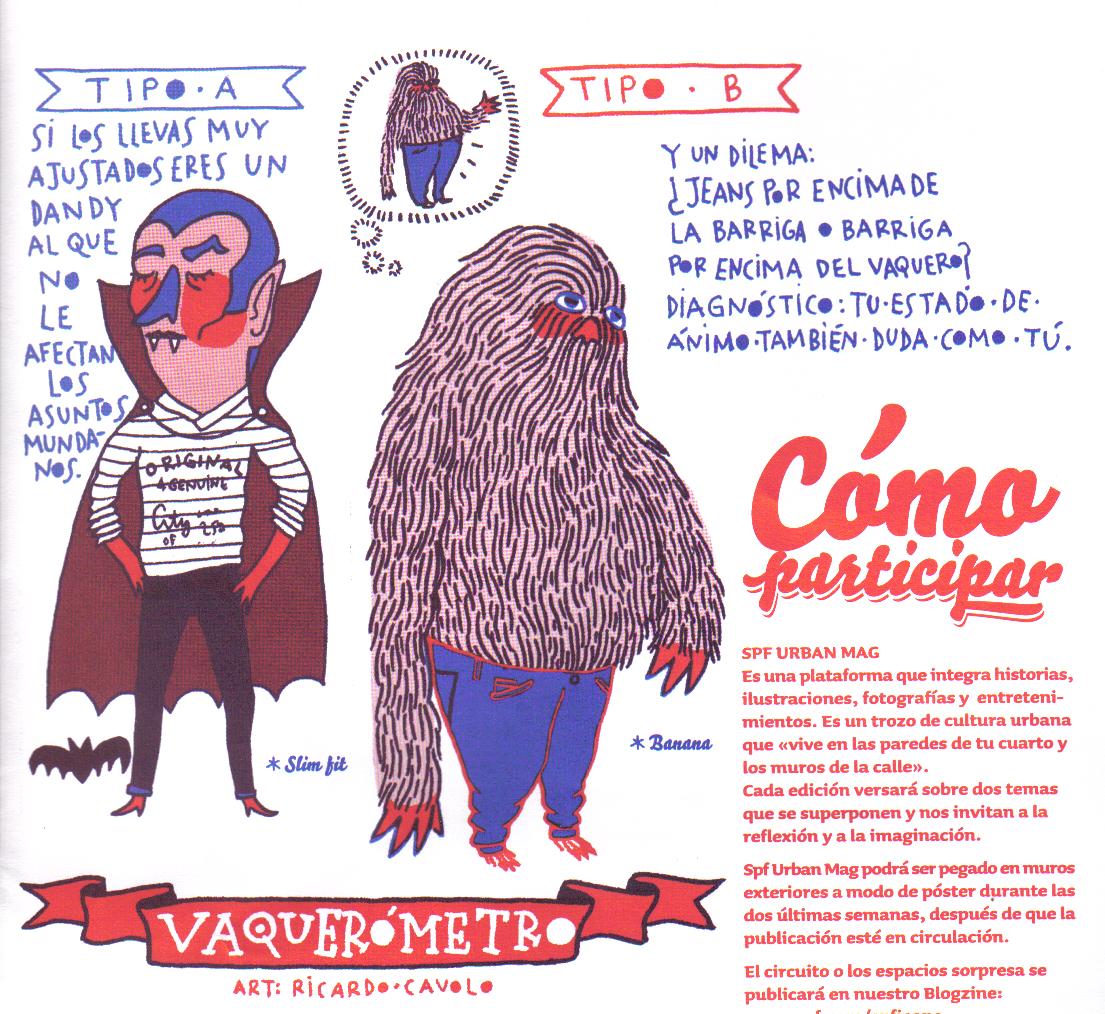 TIPO·A
SÍ LOS LLEVAS MUY
AJUSTADOS ERES UN
DANDY
AL QUE
NO
LE
AFECTAN
LOS
ASUNTOS
MUNDA-
NOS.
ORIGINAL
& GENUINE
City
OF
* Slim fit
TIPO · B
Y UN DILEMA:
¿JEANS POR ENCIMA DE
LA BARRIGA O BARRIGA
POR ENCIMA DEL VAQUERO?
DIAGNÓSTICO: TU·ESTADO·DE·
ÁNIMO·TAMBIÉN·DUDA·COMO·TÚ.
* Banana
VAQUERÓMETRO
ART: RICARDO·CAVOLO
Cómo
participar
SPF URBAN MAG
Es una plataforma que integra historias,
ilustraciones, fotografías y entreteni-
mientos. Es un trozo de cultura urbana
que «vive en las paredes de tu cuarto y
los muros de la calle».
Cada edición versará sobre dos temas
que se superponen y nos invitan a la
reflexión y a la imaginación.
Spf Urban Mag podrá ser pegado en muros
exteriores a modo de póster durante las
dos últimas semanas, después de que la
publicación esté en circulación.
El circuito o los espacios sorpresa se
publicará en nuestro Blogzine: